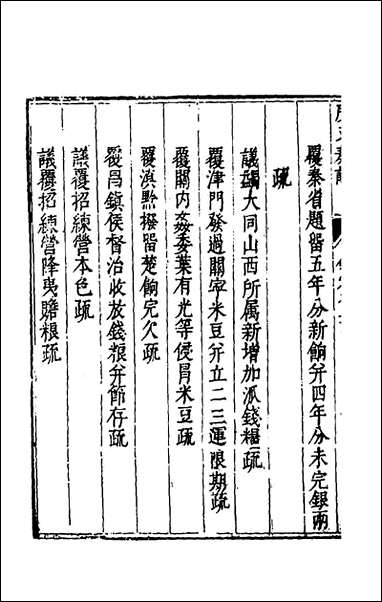 覆秦省題留五年分新餉并四年分未完銀兩
疏
議 大同山西所属新增加派錢糧疏
覆津門發過關寧米豆并立二三運限期疏
覆關内姦委葉有光等侵冒米豆疏
覆滇黔撥留楚餉完欠疏
覆昌鎮侯督治收放錢粮并節存疏
議覆招練營本色疏
議覆招練營降夷贍粮疏